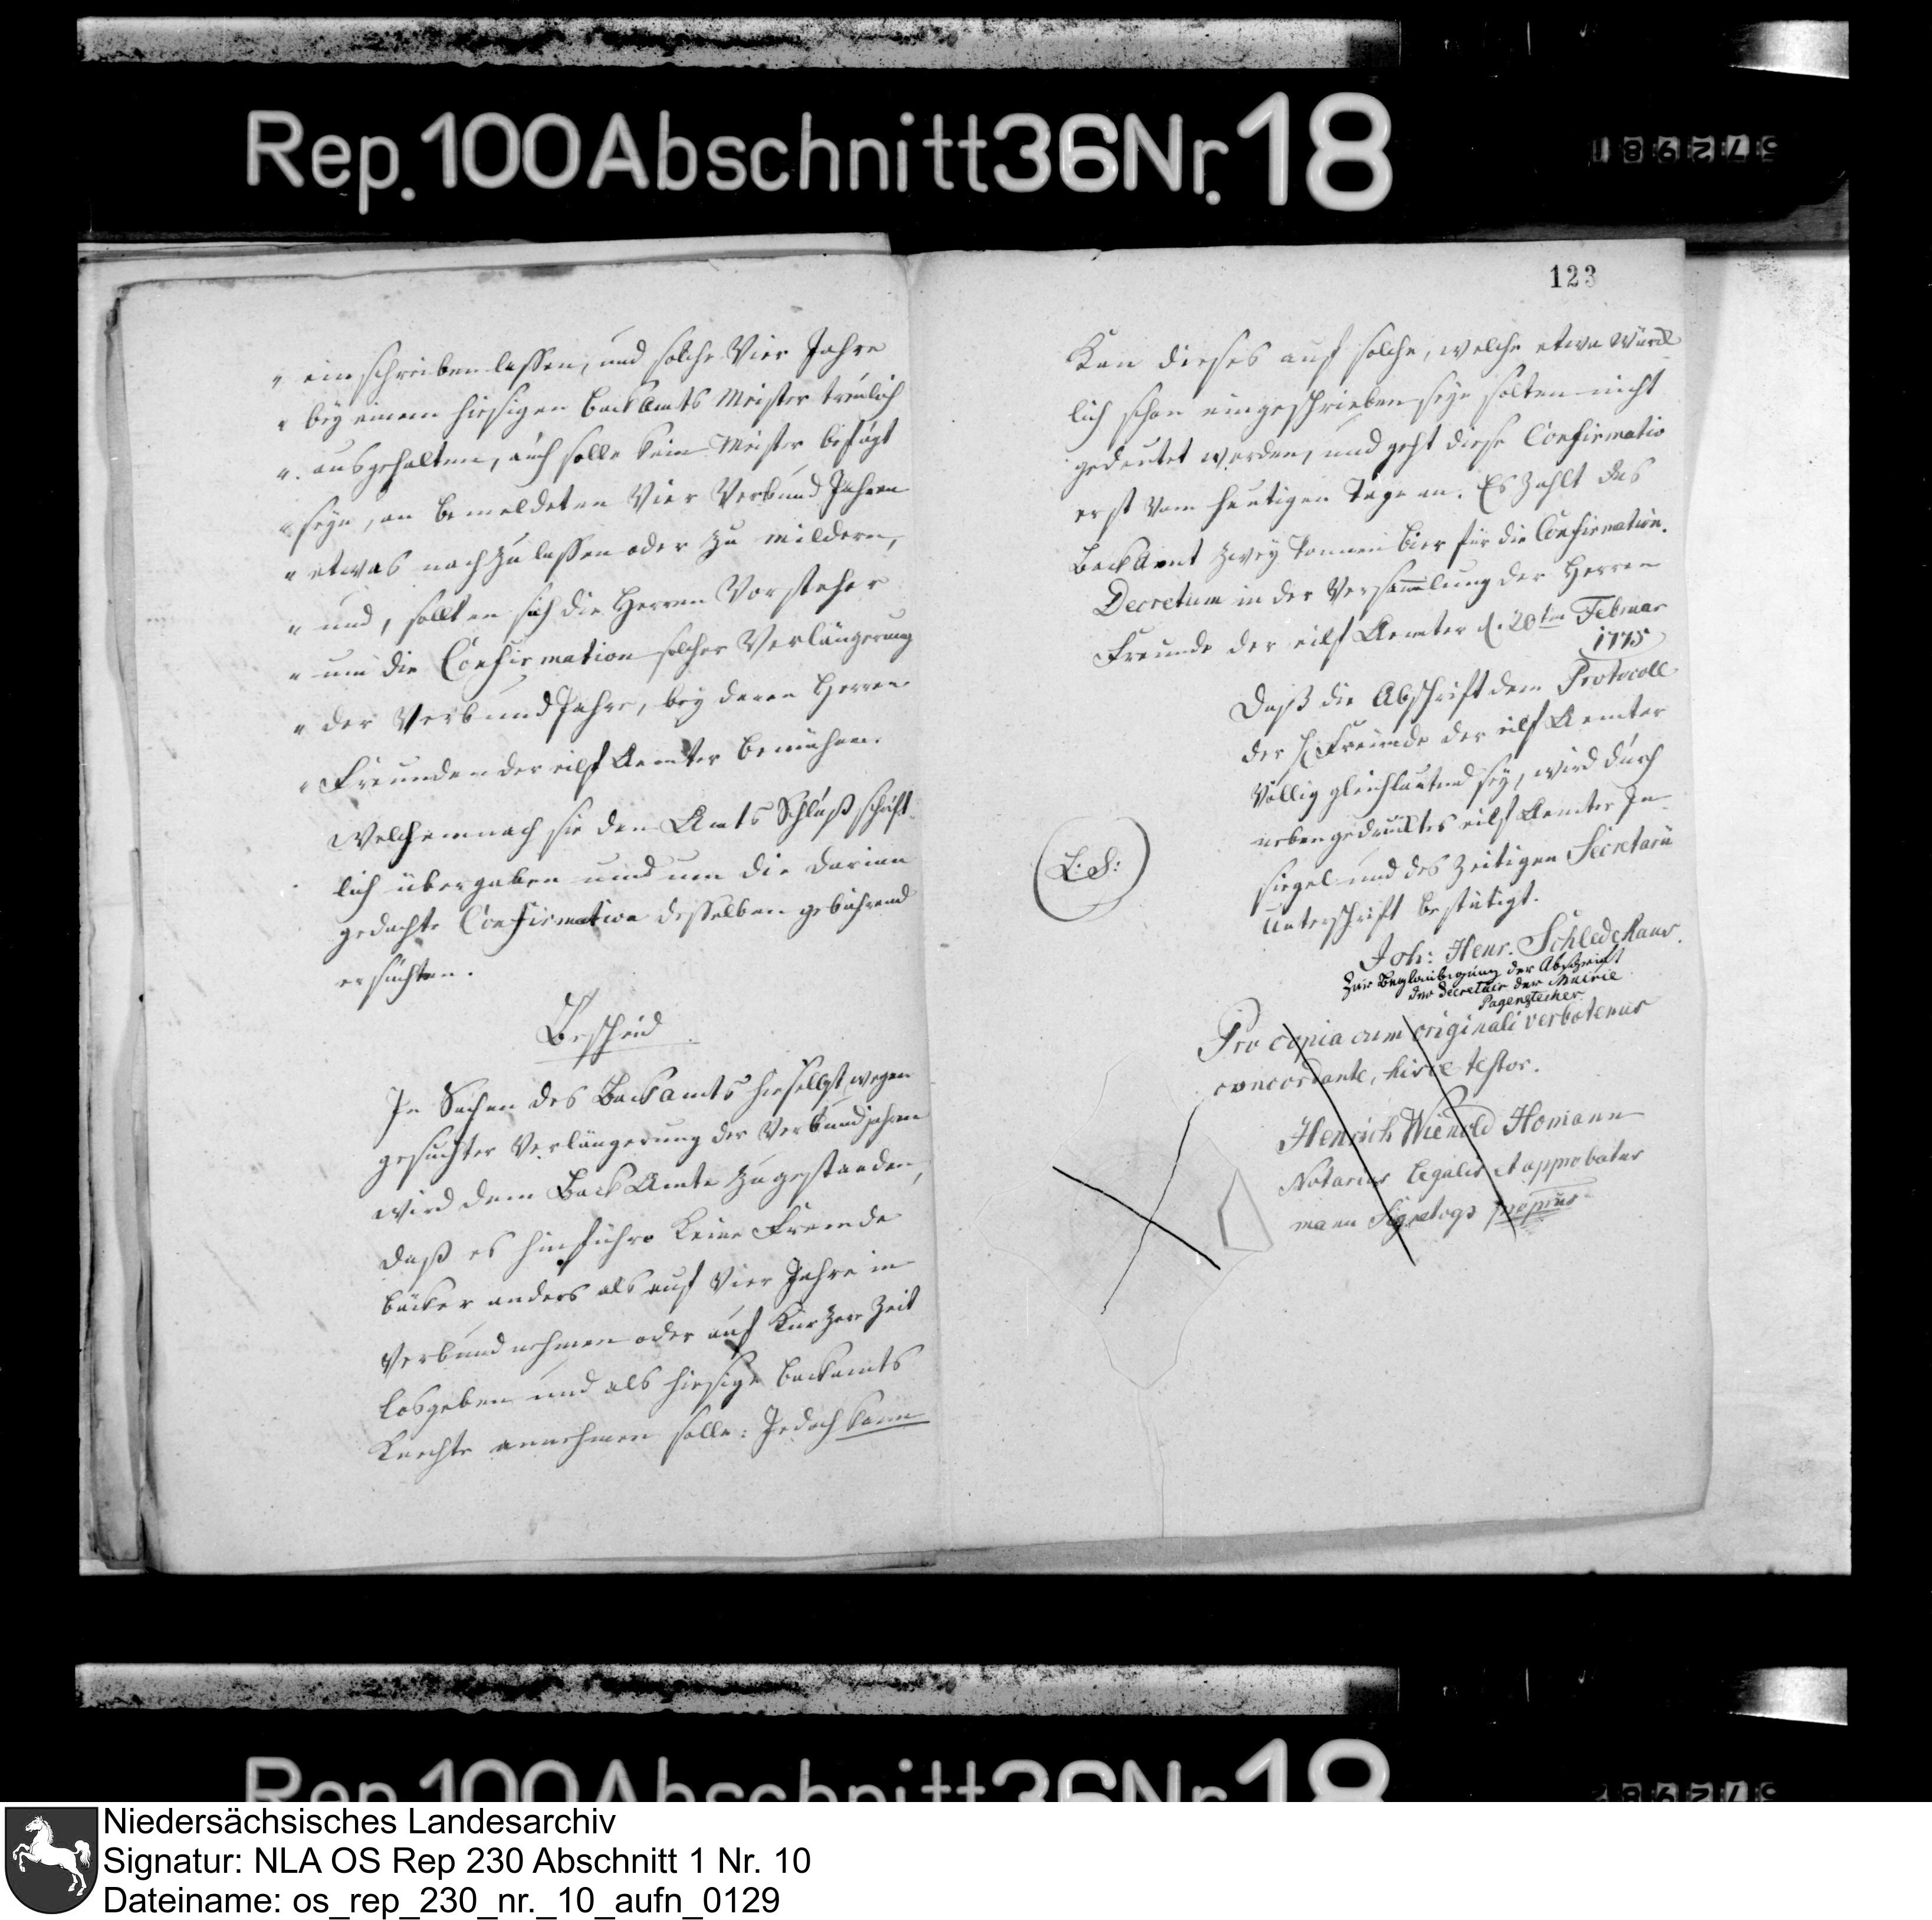 Rep. 100 Abschnitt 36 Nr. 18
" einschreiben lassen, und solche Vier Jahre
" bey einem hiesigen BackAmts Meister treulich
" ausgehalten, auch solle kein Meister befugt
" seyn, an bemeldeten Vier Verbund Jahren
" etwas nachzulassen oder zu mildern,
" und, sollten sich die Herren Vorsteher
" um die Confirmation solcher Verlängerung
" der VerbundJahre, bey deren Herren
" Freunden der eilf Aemter bemühen.
Welchemnach sie den Amts Schluß schrift-
lich übergaben und um die darinn
gedachte Confirmation desselben gebührend
ersuchten.
Bescheid
In Sachen des Backamts hieselbst wegen
gesuchter Verlängerung der Verbundjahren
wird dem BackAmte zugestanden,
daß es hinführo keine Fremde
bäcker anders als auf Vier Jahre in
Verbund nehmen oder auf kürzere Zeit
losgeben und als hiesige backamts
Knechte annehmen solle: Jedoch kann
123
Kan dieses auf solche, welche etwa würk-
lich schon eingeschrieben seyn solten nicht
gedeutet werden, und geht diese Confirmatio
erst vom heutigen Tage an. Es zahlt das
BackAmt zwey Tonnen bier für die Confirmation.
Decretum in der Versammlung der Herren
Freunde der eilf Aemter d. 20ten Februar
1775
Daß die Abschrift dem Protocoll
der H. Freunde der eilf Aemter
völlig gleichlautend sey, wird durch
nebengedrucktes eilf Aemter In-
siegel und des zeitigen Secretarii
Unterschrift bestätigt.
L: S:
Joh: Henr. Schledehaus.
Zur Beglaubigung der Abschrift
der Secretair der Mairie
Pagenstecher
Pro copia cum originali verbotenus
concordante, hisce testor.
Henrich Wienold Homann
Notarius legalis et approbatus
manu
Rep. 100 Abschnitt 36 Nr. 18
Niedersächsisches Landesarchiv
Signatur: NLA OS Rep 230 Abschnitt 1 Nr. 10
Dateiname: os_rep_230_nr._10_aufn_0129